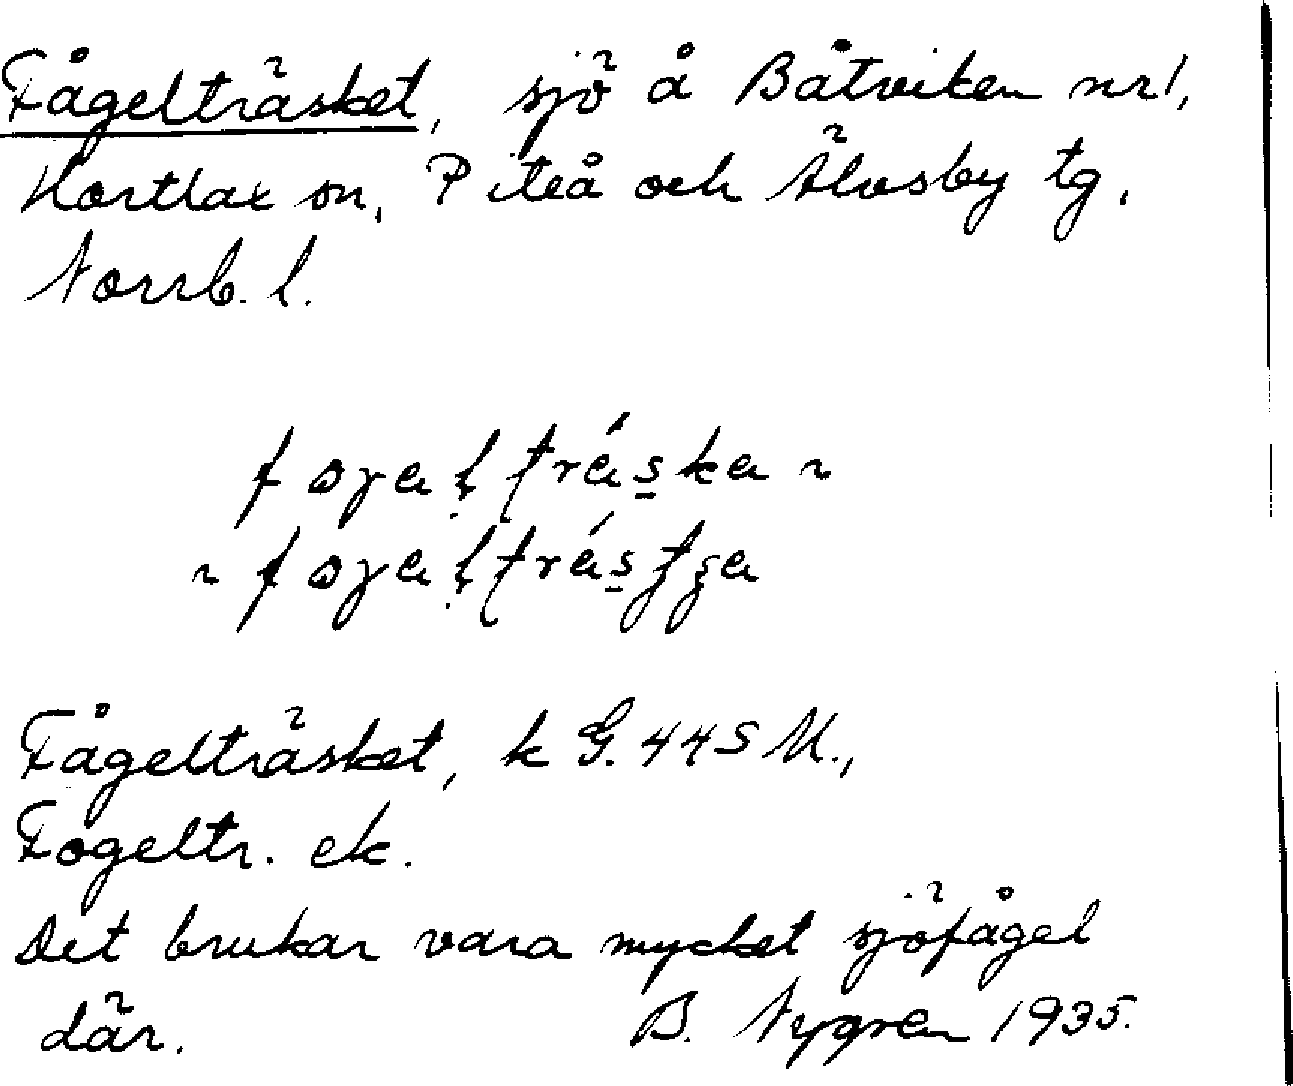 Fågelträsket, sjö å Båtviken nr 1,
Hortlax sn, Piteå och Älvsby tg,
Norrb. l.
Fågelträsket, k G. 44 S M.,
Fogeltr. ek.
Det brukar vara mycket sjöfågel
där. B. Nygren 1935.